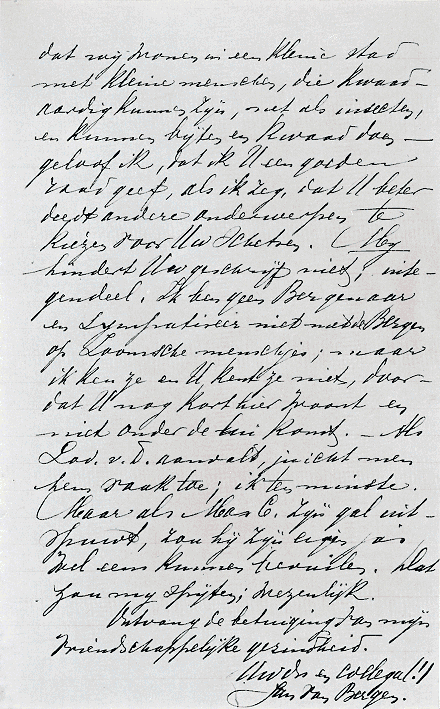 dat wij wonen in een kleine stad
met kleine menschen, die kwaad-
aardig kunnen zijn, net als insecten,
en kunnen bijten en kwaad doen —
geloof ik, dat ik U een goeden
raad geef, als ik zeg, dat U beter
deedt andere onderwerpen te
kiezen voor Uw schetsen. Mij
hindert Uw geschrijf niet; inte-
gendeel. Ik ben geen Bergenaar
en sympatiseer niet met de Bergen
op Zoomsche menschjes; maar
ik ken ze en U kent ze niet, door-
dat U nog kort hier woont en
niet onder de lui komt. — Als
Lod. v. D. aanvalt, juicht men
hem vaak toe; ik ten minste.
Maar als Mas C. zijn gal uit-
spuwt, zou hij zijn eigen jas
wel eens kunnen bevuilen. Dat
zou mij spijten; wezenlijk.
Ontvang de betuiging van mijn
vriendschappelijke gezindheid.
Uw dr en collega!!
Jan van Bergen.